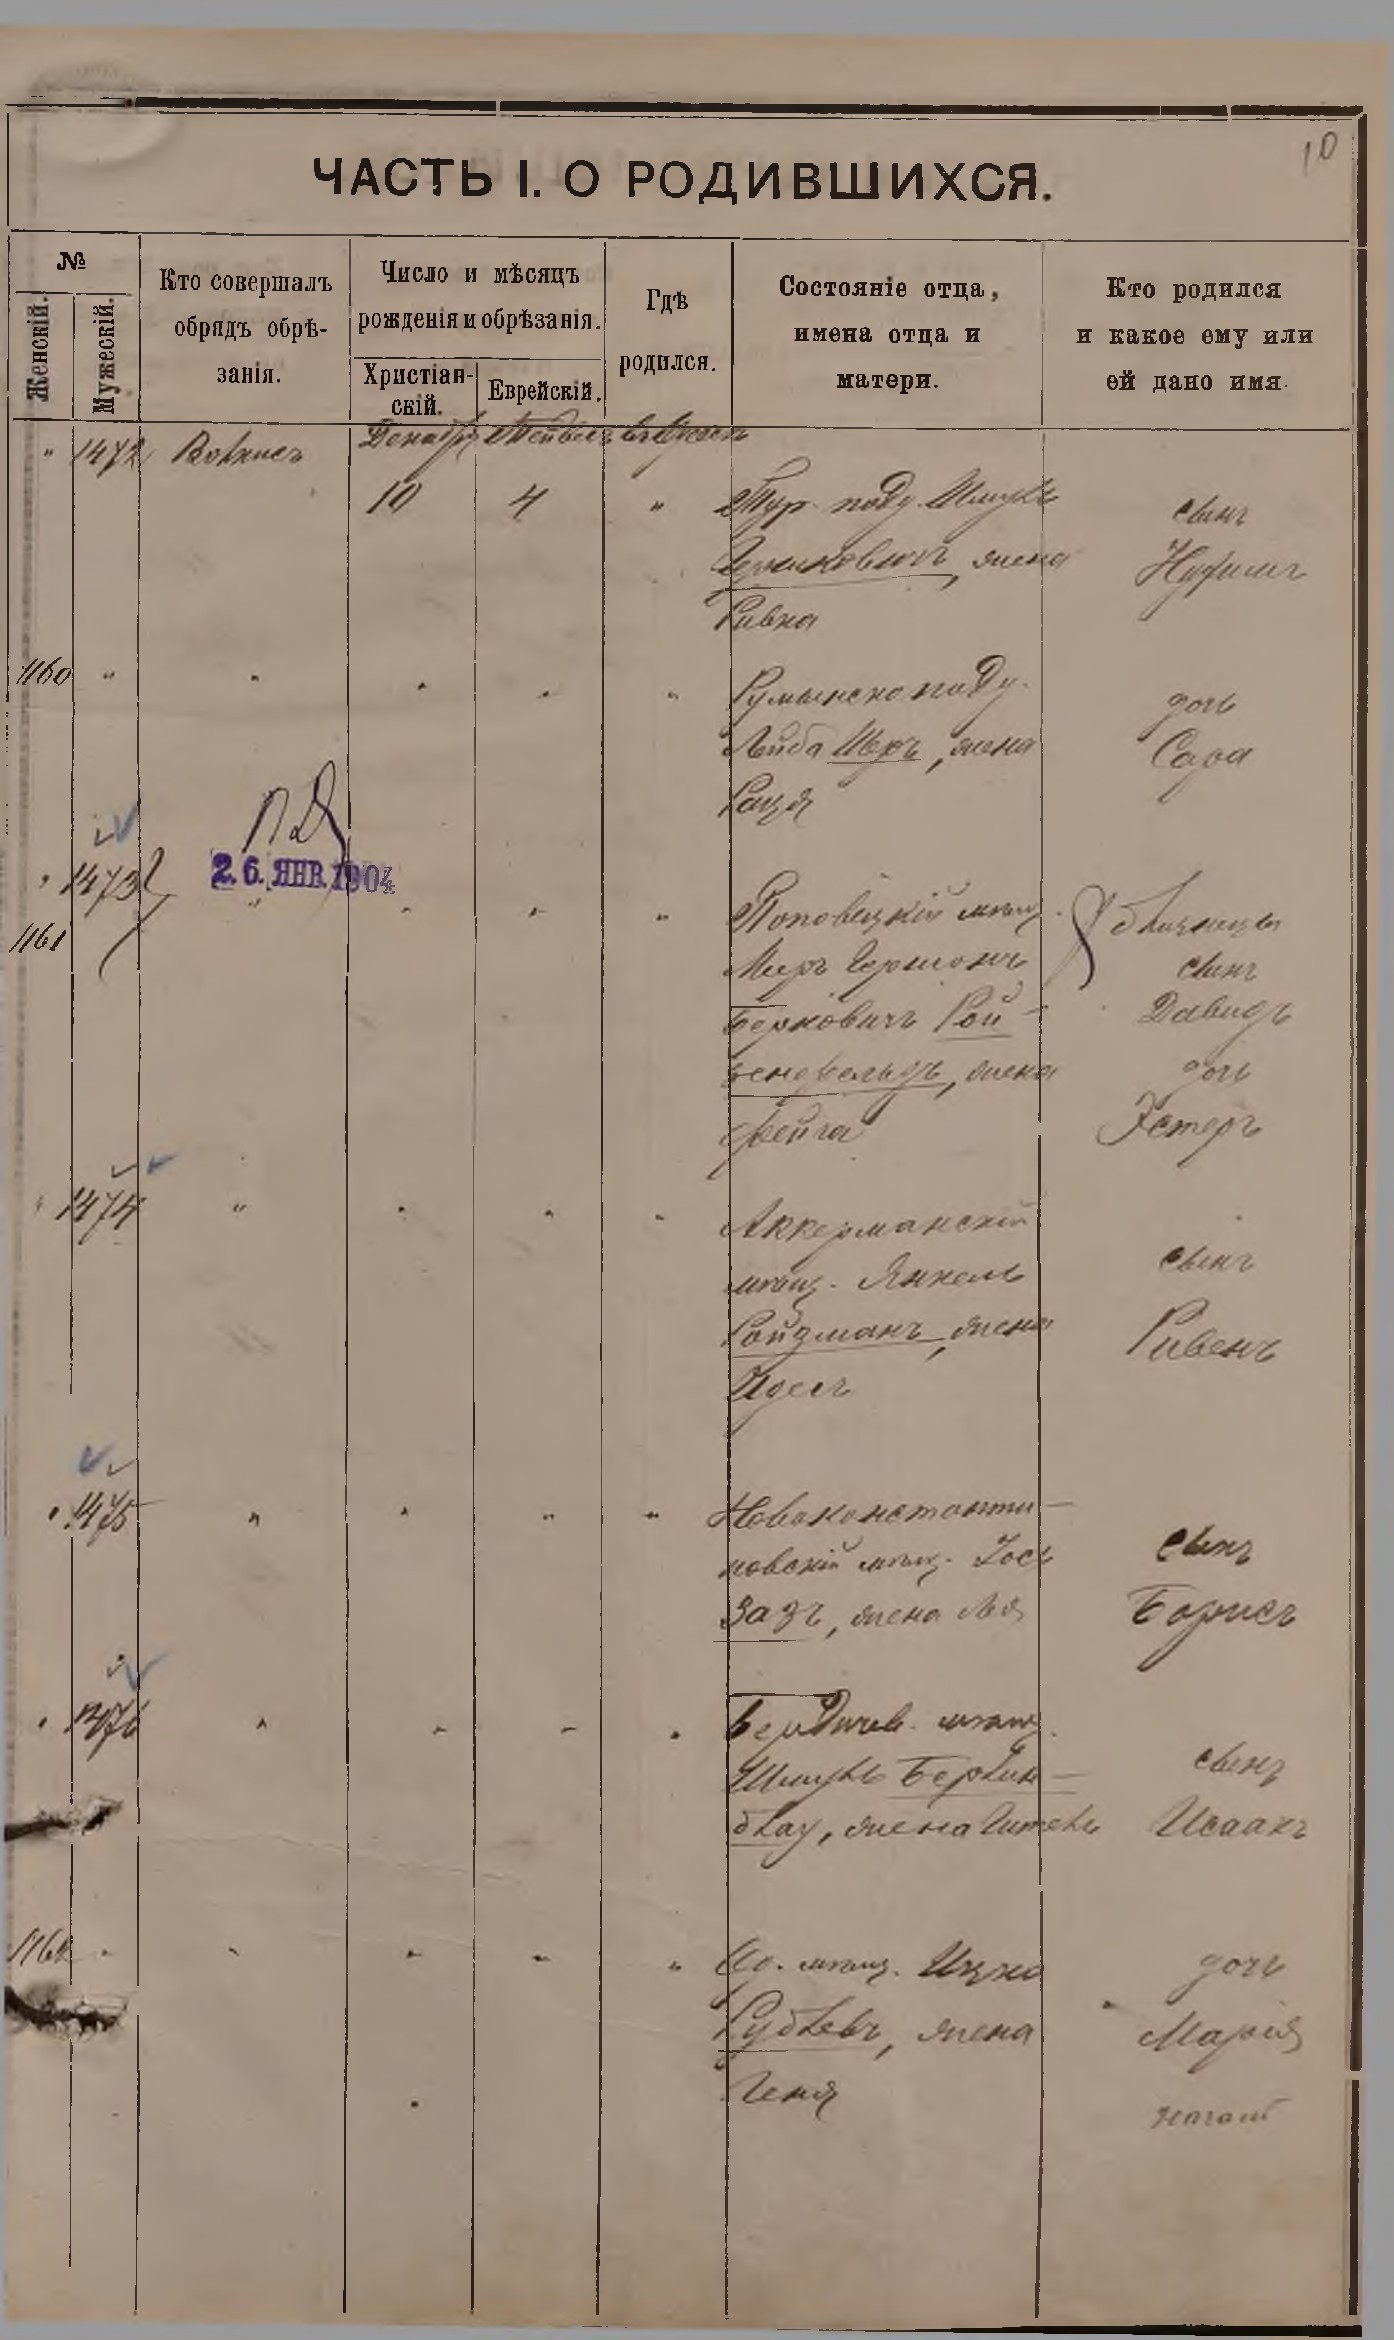 10
ЧАСТЬ I. О РОДИВШИХСЯ.
№
Женскій.
Мужескій.
Кто совершалъ
обрядъ обрѣ-
занія.
Число и мѣсяцъ
рожденія и обрѣзанія.
Христіан-
скій.
Еврейскій.
Гдѣ
родился.
Состояніе отца,
имена отца и
матери.
Кто родился
и какое ему или
ей дано имя.
" 1472
Декабря
10 4 "
Тур. подд. Шмуль
жена
Ривка
сынъ
1160 " " " " "
Румынско подд.
Лейба Шеръ, жена
дочь
Сара
ПД
26. ЯНВ. 1904
" 1473 " " " "
1161
мѣщ.
Меръ Гершонъ
Берковичъ Рой-
зенфельдъ, жена
Фейга
близнецы
сынъ
Давидъ
дочь
Эстеръ
" 1474 " " " "
Аккерманскій
мѣщ. Янкель
Ройзманъ, жена
сынъ
Ривенъ
" 1475 " " " "
Новоконстанти-
новскій мѣщ. Іось
Зазъ, жена Лея
сынъ
Борисъ
" 1476 " " " "
Бердичев. мѣщ.
Шмуль Берлин-
блау, жена Гитель
сынъ
Исаакъ
1162 " " " " "
Од. мѣщ. Ицко
Рублевъ, жена
Геня
дочь
Марія